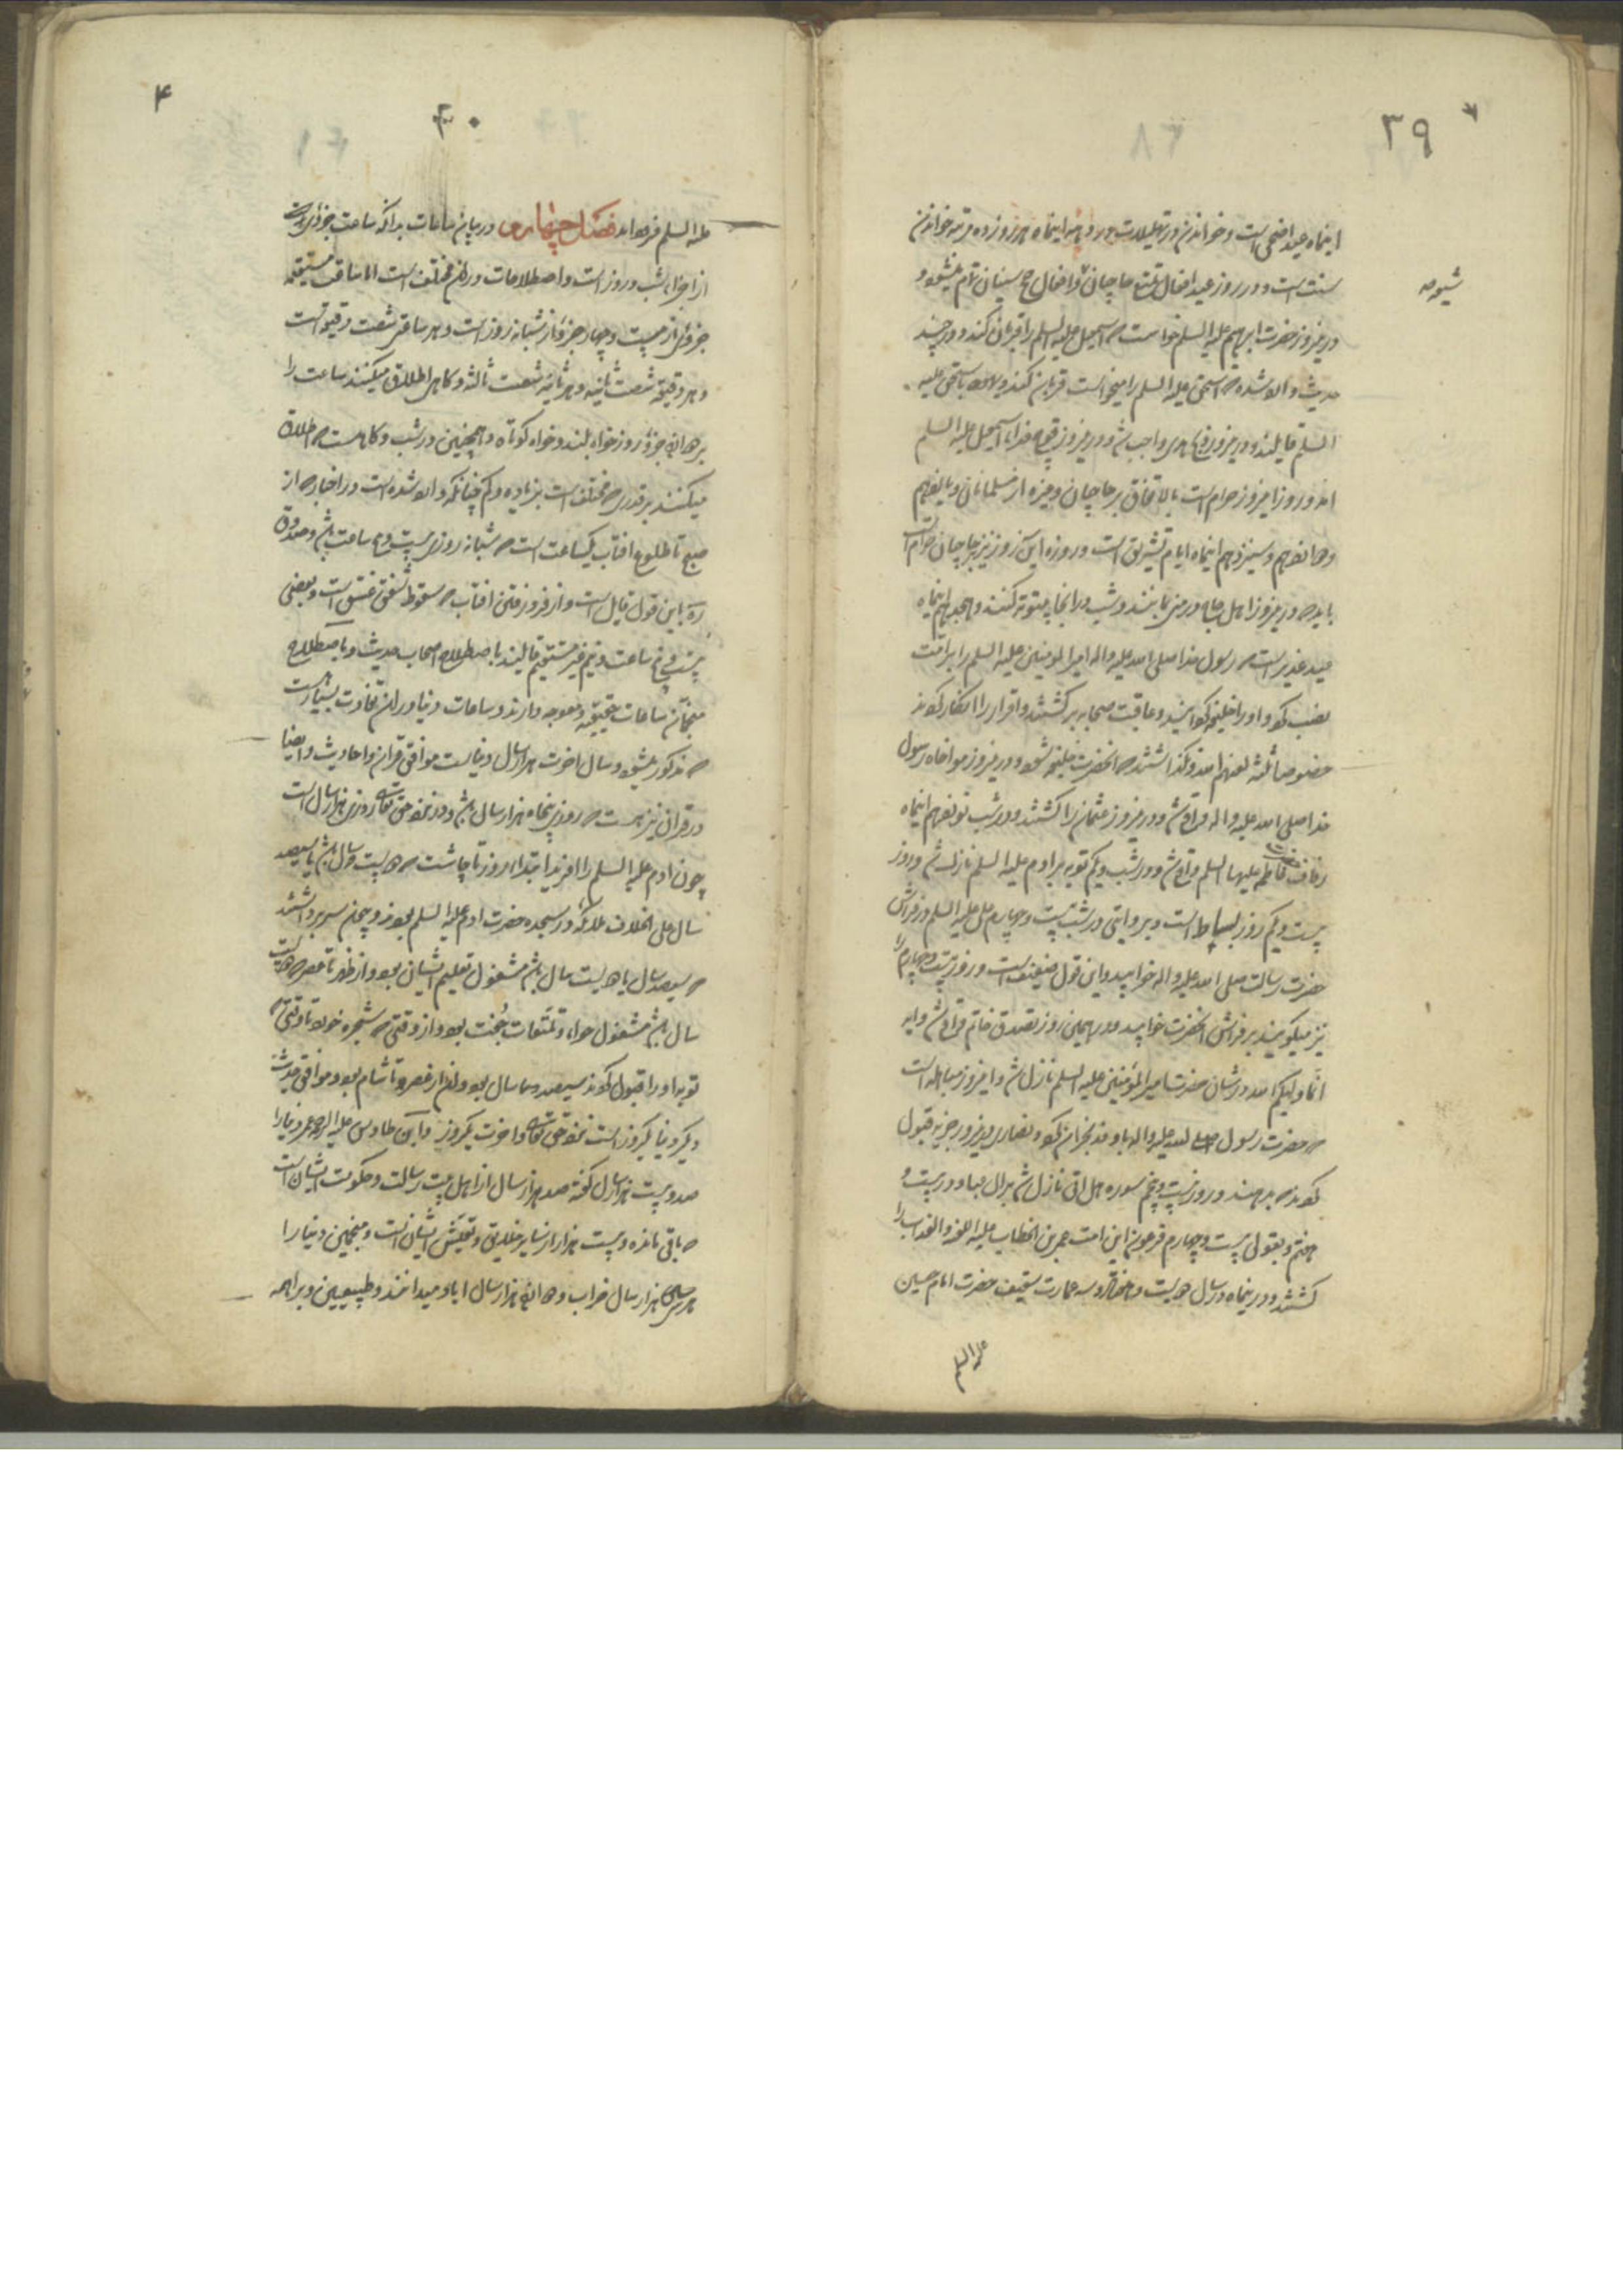 ۳۹
اینماه عید اضحی است و خواندن در تهلیلات در دهه اینماه هر روز ده مرتبه خواندن
سنت است و در روز عید افعال تمتع حاجیان و افعال حج سنیان تمام میشود و
شیوه
درین روز حضرت ابرهیم علیه السلم خواست که اسمعیل علیه السلم را قربان کند و در چند
حدیث وارد شده که اسحق علیه السلم را میخواست قربان کند و باسحق علیه
السلم قایلند و درین روز واجب شد و درین روز فدا با اسمعیل علیه السلم
امد و روزه این روز حرام است بالاتفاق بر حاجیان و غیره از مسلمانان و یازدهم
و دوازدهم و سیزدهم اینماه ایام تشریق است و روزه این روز نیز بر حاجیان حرام است
باید که درین روز اهل حاج در منی باشند و شب در انجا بیتوته کنند و هجدهم اینماه
عید غدیر است که رسول خدا صلی الله علیه واله امیر المومنین علیه السلم را بامامت
نصب کرد و او را خلیفه گردانید و عاقبت صحابه برگشتند و اقرار را انکار کردند
خصوصا ثلثه لعنهم الله و نگذاشتند که انحضرت خلیفه شود و درین روز مواخاه رسول
خدا صلی الله علیه واله واقع شد و درین روز عثمان را کشتند و در شب نوزدهم اینماه
زفاف فاطمه علیها السلم واقع شد و در شب و یکم توبه بر ادم علیه السلم نازل شد و روز
بیست و یکم روز بساط است و بروایتی در شب بیست و چهارم علی علیه السلم در فراش
حضرت رسالت صلی الله علیه واله خوابید و این قول ضعیف است و روز بیست و چهارم را
نیز میگویند بر فراش انحضرت خوابید و در همین روز تصدق خاتم واقع شد و ایه
انما ولیکم الله در شان حضرت امیر المؤمنین علیه السلم نازل شد و این روز مباهله است
که حضرت رسول صلی الله علیه واله با وفد نجران کرد و نصاری درین روز جزیه قبول
کردند که بدهند و روز بیست و پنجم سوره هل اتی نازل شد بر ال عبا و در بیست و
هفتم و بقول بیست و چهارم فرعون این امت عمر بن الخطاب علیه اللعنه والعذاب را
کشتند و در اینماه در سال دویست و هفتاد و سه عمارت سقیف حضرت امام حسین
علیه السلم
۴
۴۰
علیه السلم فصل چهارم در بیان ساعات بدانکه ساعت جزوی
از اجزاء شب و روز است و اصطلاحات در ان مختلف است اما ساعت مستقیمه
جزوی از بیست و چهار جزو از شبانه روز است و هر ساعتی شصت دقیقه است
و هر دقیقه شصت ثانیه و هر ثانیه شصت ثالثه و گاهی اطلاق میکنند ساعت را
بر دوازده جزو روز خواه بلند و خواه کوتاه و همچنین در شب و گاه هست که اطلاق
میکنند بر قدری که مختلف است بزیاده و کم چنانکه وارد شده است در اخبار که از
صبح تا طلوع افتاب یکساعت است که شبانه روزی بیست و ساعت باشد و صدوق
ره باین قول قایل است و از فرو رفتن افتاب که سقوط شفق غسق است و بعضی
بیست و ساعت و نیم غیر مستقیم قایلند باصطلاح اصحاب حدیث و باصطلاح
منجمان ساعات حقیقیه و معوجه دارند و ساعات دنیا در ان تفاوت بسیار است
که مذکور میشود و سال اخرت هزار سال دنیاست موافق قران و احادیث و ایضا
در قران نیز هست که روزی پنجاه هزار سال باشد و در نزد حق تعالی روزی هزار سال است
چون ادم علیه السلم را افرید ابتداء روز تا چاشت که دویست سال باشد یا سیصد
سال علی اختلاف ملائکه در سجده حضرت ادم علیه السلم بودند و چون سر برداشتند
که سیصد سال یا دویست سال باشد مشغول تعلیم ایشان بود و از ظهر تا عصر که دویست
سال باشد مشغول حواء و تمتعات جنت بود و از وقتی که شجره خورد تا وقتی که
توبه او را قبول کردند سیصد سال بود و ان از عصر تا شام بود و موافق حدیث
دیگر دنیا یکروز است نزد حق تعالی و اخرت یکروز و ابن طاوس علیه الرحمه عمر دنیا را
صد و بیست هزار سال گفته صد هزار سال از اهل بیت رسالت و حکومت ایشان است
که باقی مانده و بیست هزار از سایر خلایق و تعیش ایشان است و منجمین دنیا را
هر سی هزار سال خراب و دوازده هزار سال اباد میدانند و طبیعیین و براهمه